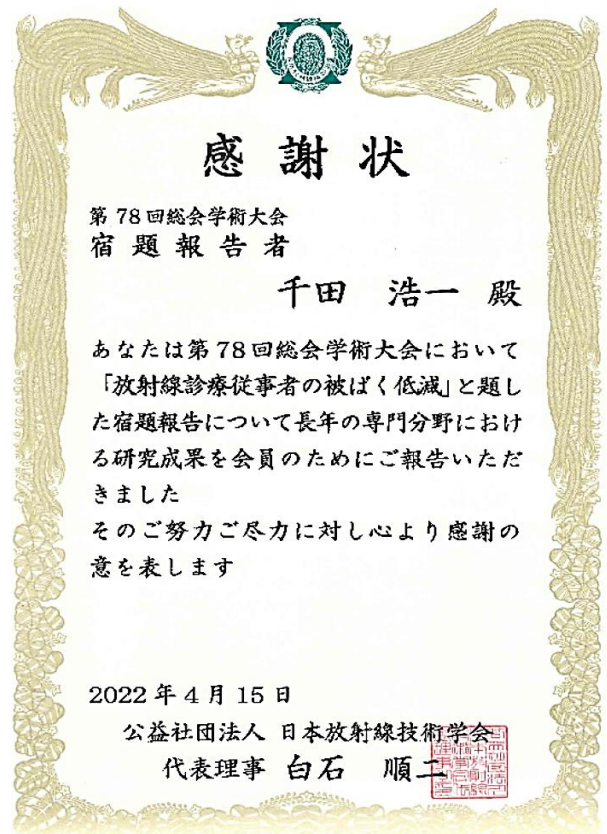 感謝状
第78回総会学術大会
宿題報告者
千田 浩一 殿
あなたは第78回総会学術大会において
「放射線診療従事者の被ばく低減」と題し
た宿題報告について長年の専門分野におけ
る研究成果を会員のためにご報告いただ
きました
そのご努力ご尽力に対し心より感謝の
意を表します
2022年4月15日
公益社団法人 日本放射線技術学会
代表理事 白石 順二